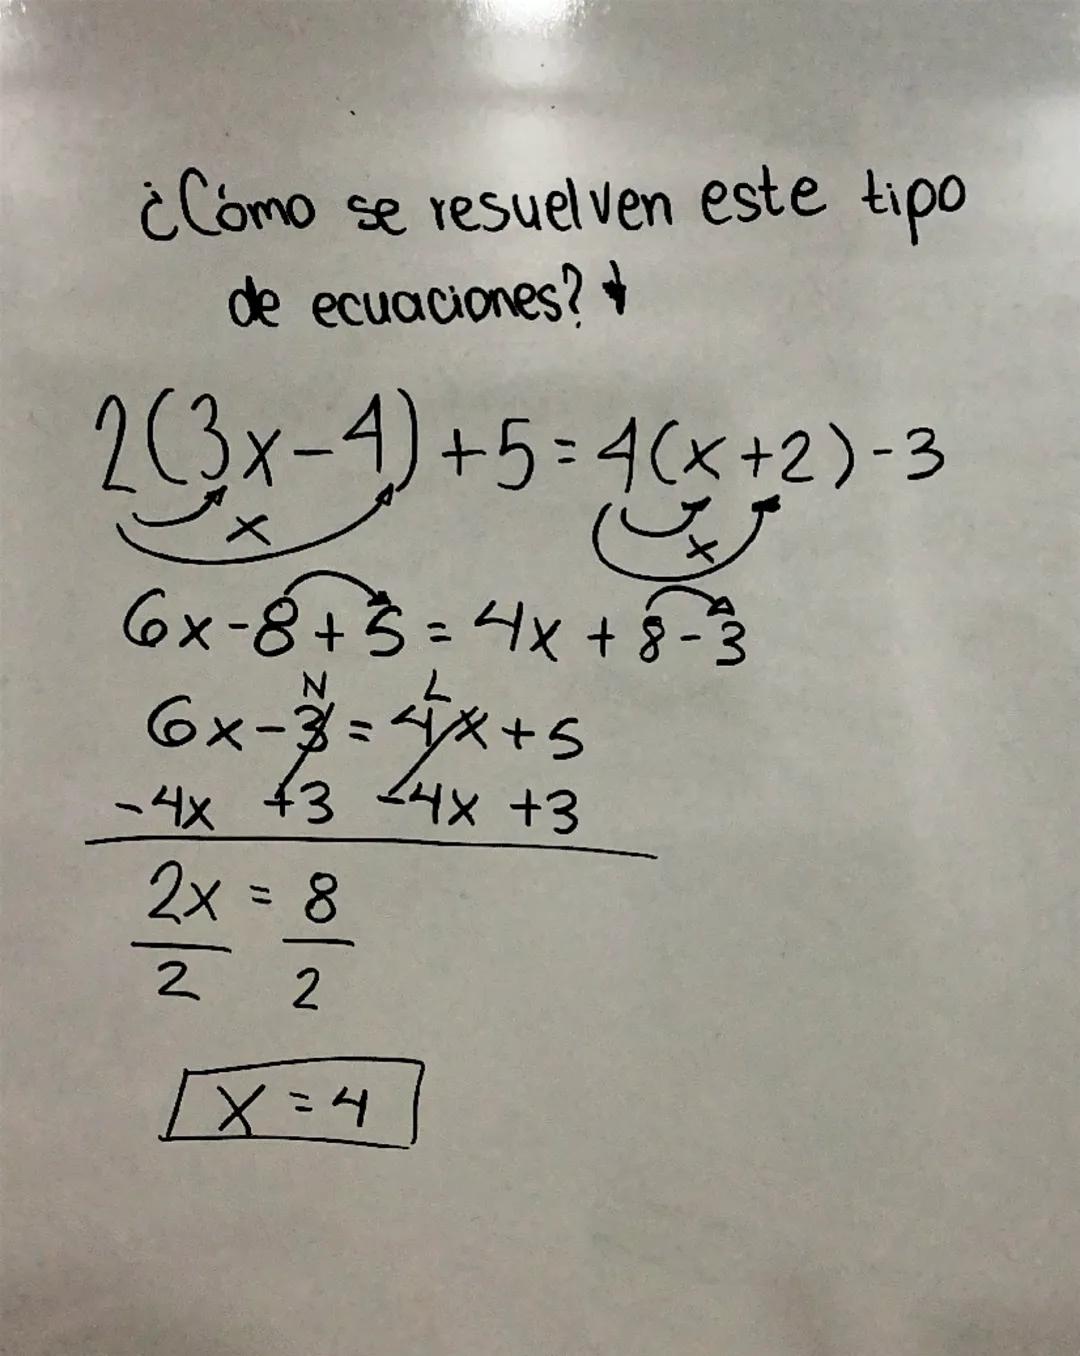 ¿Cómo se resuelven este tipo
de ecuaciones? ↓
2(3x-4)+5=4(x+2)-3
x x
6x-8+5=4x+8-3
N L
6x-3=4x+5
-4x +3 -4x +3
2x = 8
2 2
x = 4